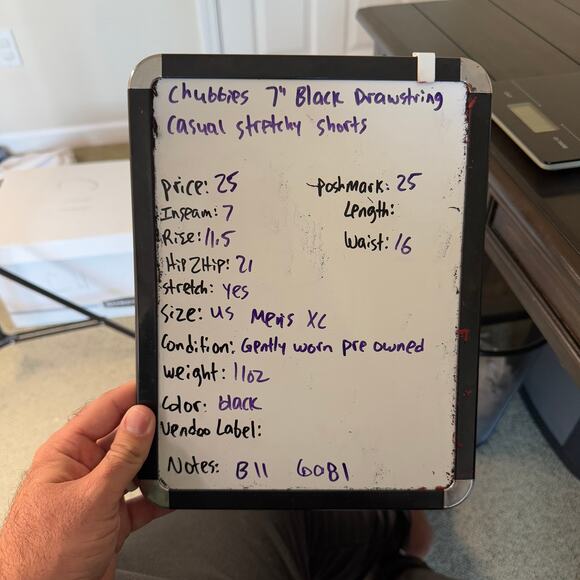 Chubbies 7" Black Drawstring
Casual stretchy shorts
Price: 25
Poshmark: 25
Inseam: 7
Length:
Rise: 11.5
Waist: 16
Hip 2 Hip: 21
Stretch: yes
Size: US Men's XL
Condition: Gently worn pre owned
Weight: 11oz
Color: black
Vendoo Label:
Notes: B11 60B1